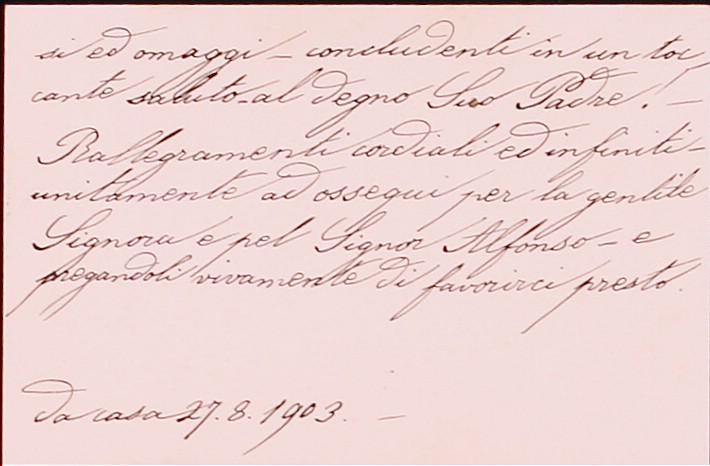 si ed omaggi – concludenti in un toc
cante saluto al degno Suo Padre! –
Rallegramenti cordiali ed infiniti –
unitamente ad ossequi per la gentile
Signora e pel Signor Alfonso – e
pregandoli vivamente di favorirci presto.
da casa 27.8.1903. –